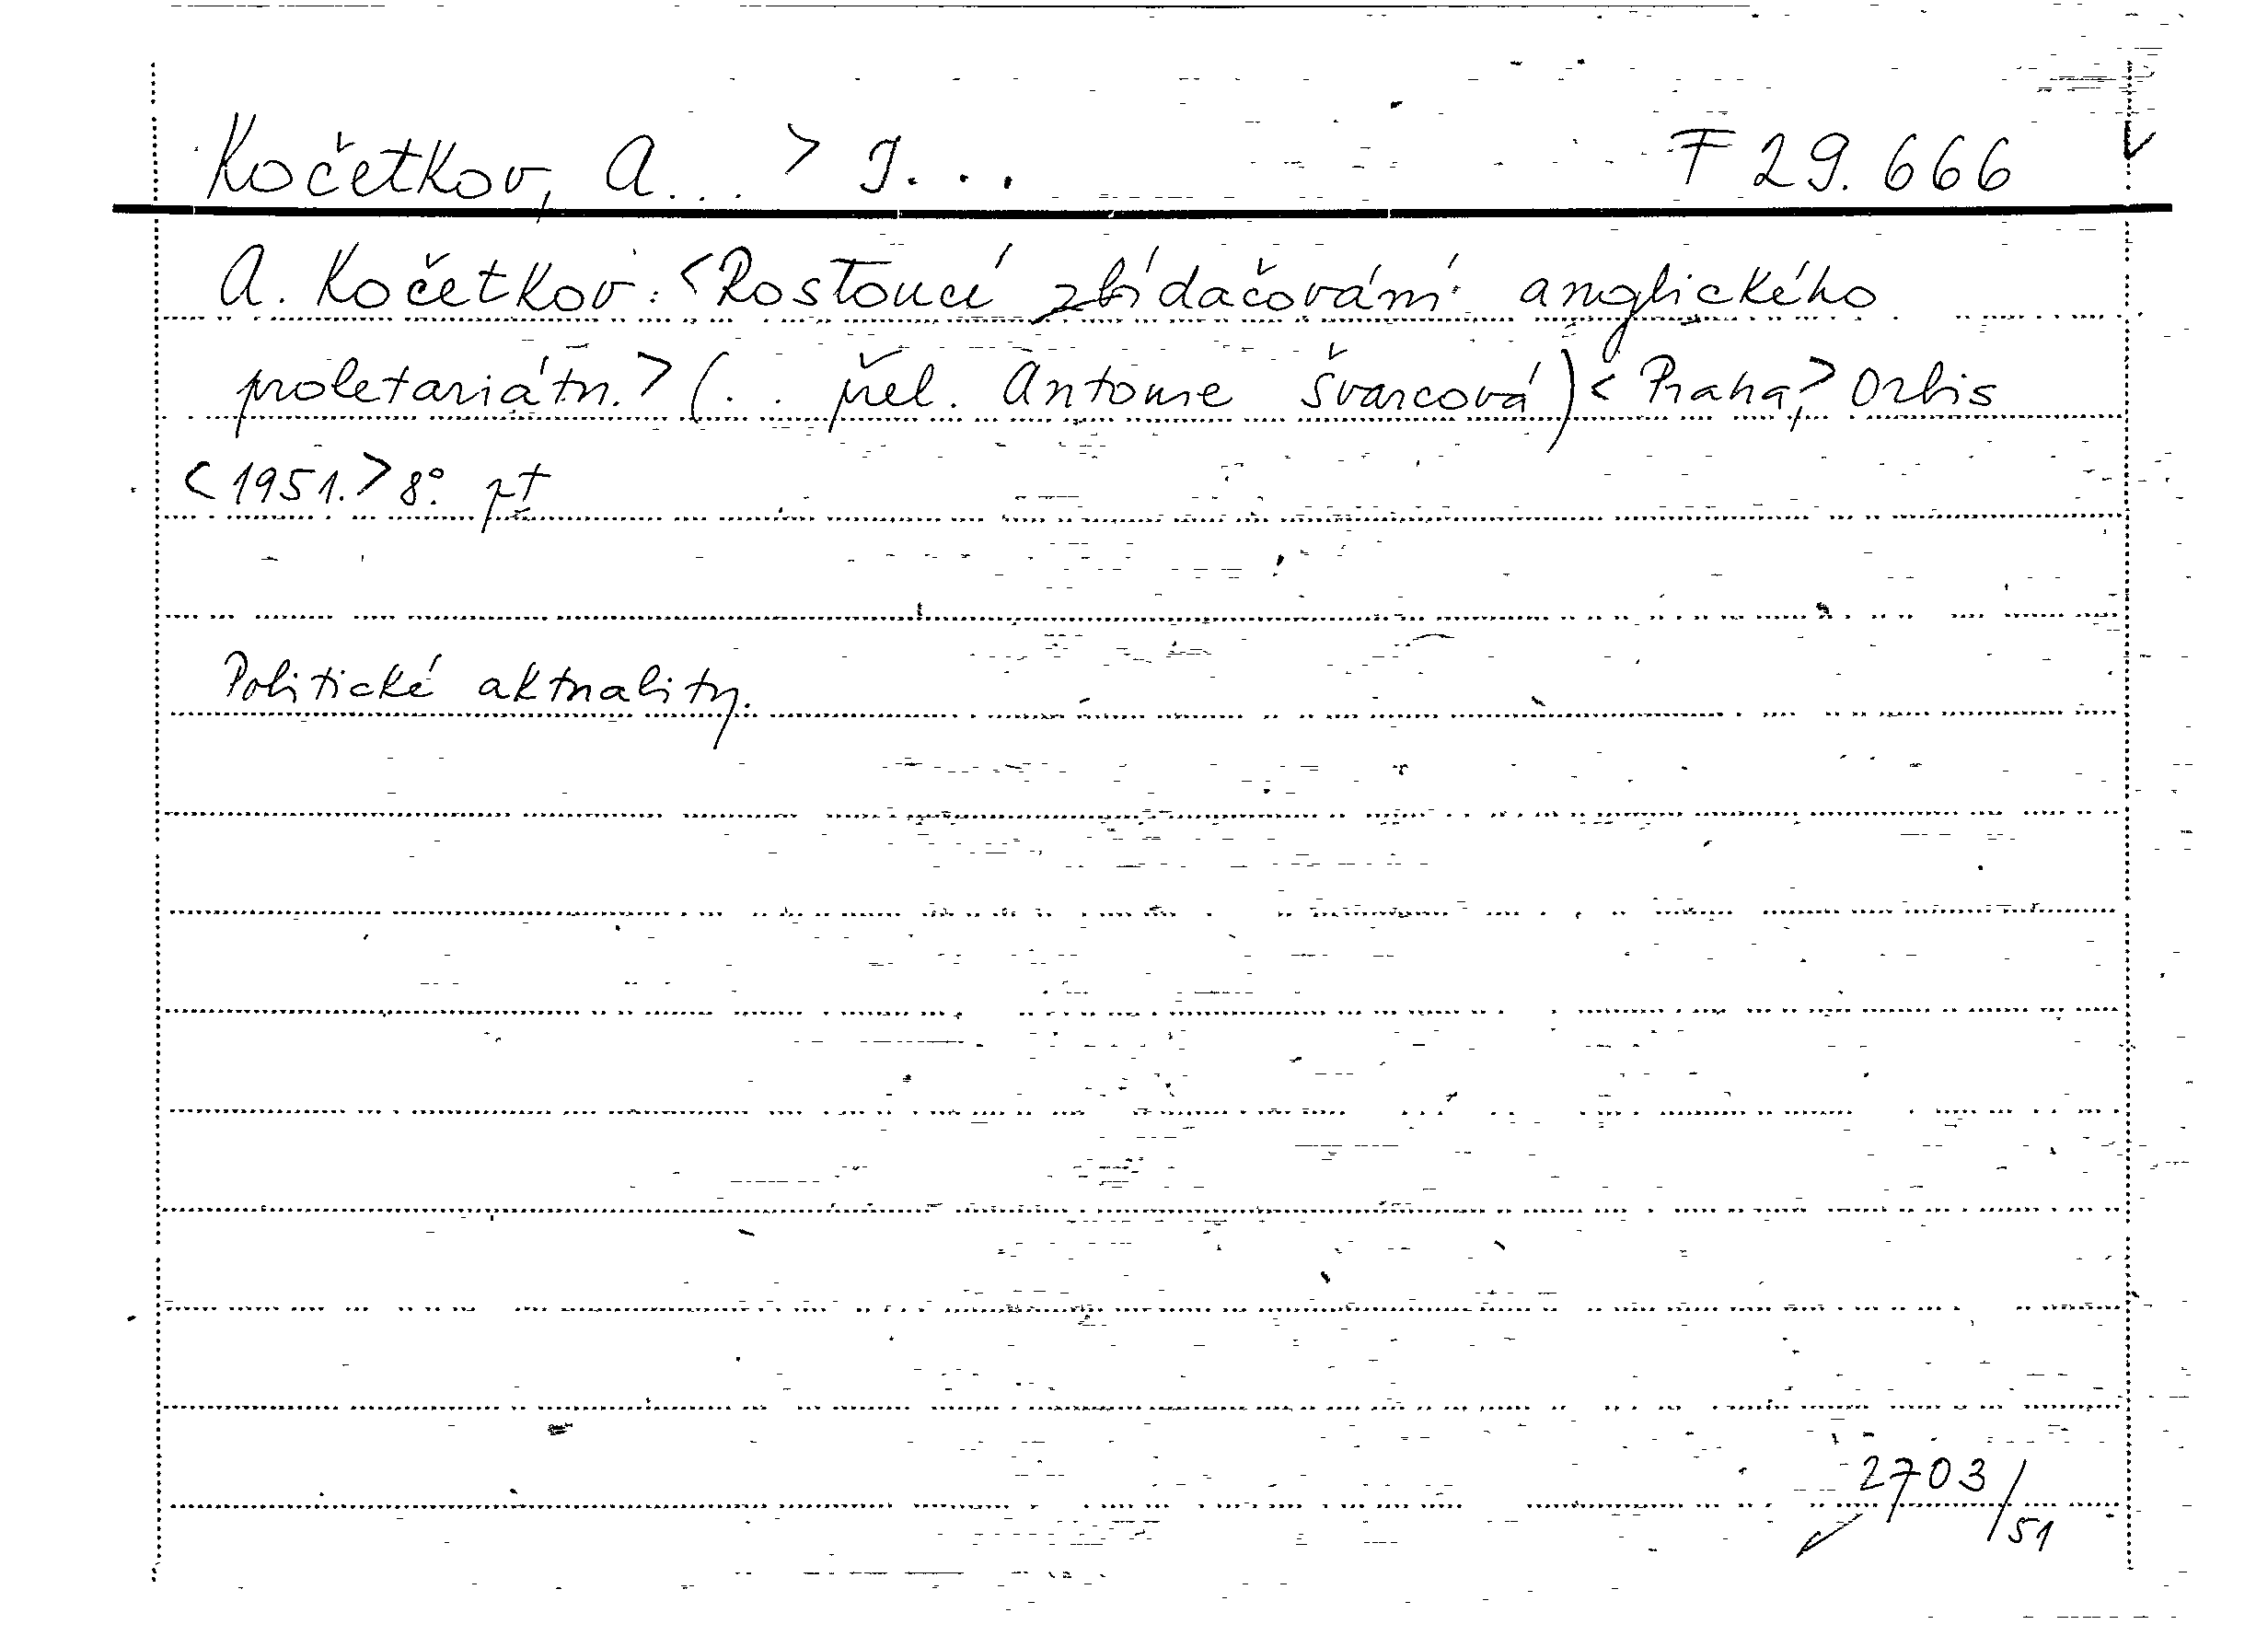 Kočetkov, A... > J... F 29.666
A. Kočetkov: <Rostoucí zbídačování anglického
proletariátu.> (.. přel. Antonie Švarcová) <Praha,> Orbis
<1951.> 8°.
Politické aktuality.
2703/51